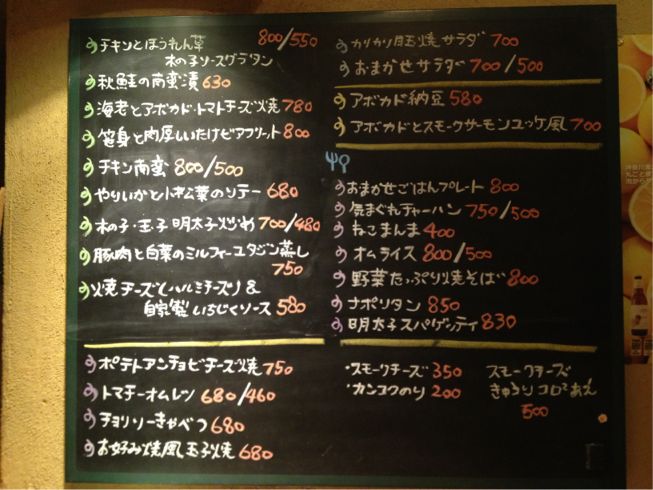 チキンとほうれん草 800/550
木の子ソースグラタン
秋鮭の南蛮漬 630
海老とアボカド・トマトチーズ焼 780
笹身と肉厚しいたけピアフリット 800
チキン南蛮 800/500
やりいかと小松菜のソテー 680
木の子・玉子 明太子炒め 700/480
豚肉と白菜のミルフィーユタジン蒸し
750
焼チーズ(ハルミチーズ)&
自家製いちじくソース 580
ポテトアンチョビチーズ焼 750
トマチーオムレツ 680/460
チョリソーきゃべつ 680
お好み焼風玉子焼 680
カリカリ豚焼サラダ 700
おまかせサラダ 700/500
アボカド納豆 580
アボカドとスモークサーモンユッケ風 700
おまかせごはんプレート 800
気まぐれチャーハン 750/500
ねこまんま 400
オムライス 800/500
野菜たっぷり焼そば 800
ナポリタン 850
明太子スパゲッティ 830
・スモークチーズ 350
・カンコクのり 200
スモークチーズ
きゅうりコロコロあえ
500